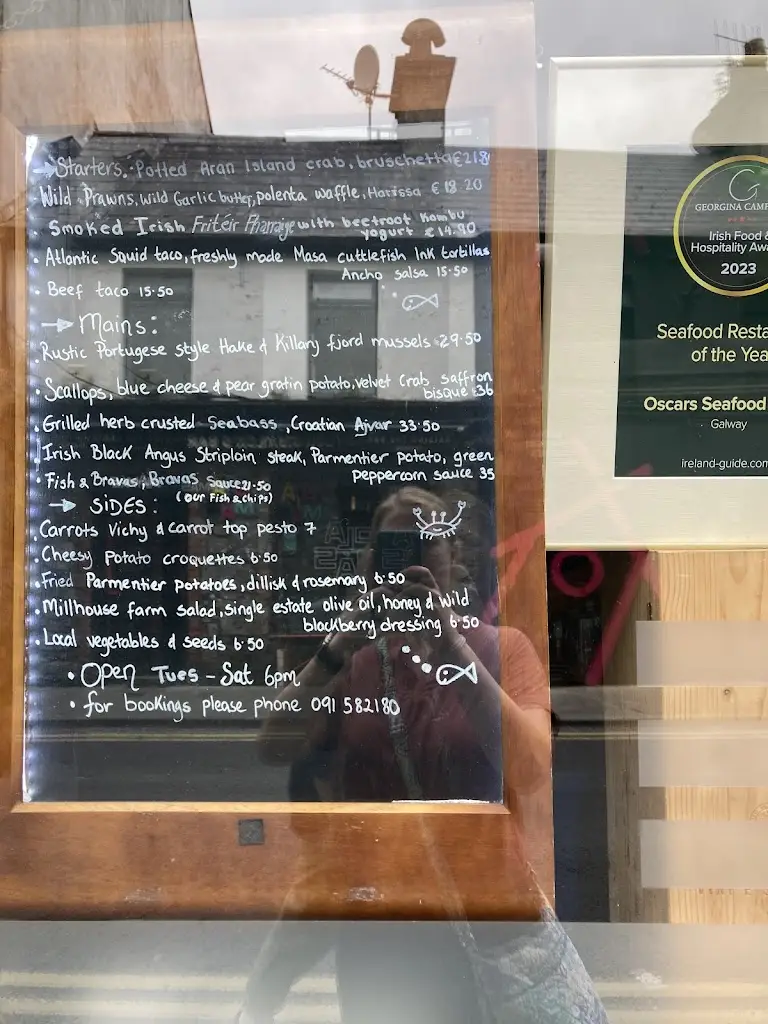 Starters: Potted Aran Island crab, bruschetta €218
Wild Prawns, wild Garlic butter, polenta waffle, Harissa € 18 20
Smoked Irish Fritéir Pharraige with beetroot Kombu
yogurt € 14.90
Atlantic Squid taco, freshly made Masa cuttlefish Ink tortillas
Ancho salsa 15.50
Beef taco 15.50
Mains:
Rustic Portugese style Hake & Killary fjord mussels 29.50
Scallops, blue cheese & pear gratin potato, velvet Crab saffron
bisque €36
Grilled herb crusted Seabass, Croatian Ajvar 33.50
Irish Black Angus Striploin steak, Parmentier potato, green
peppercorn sauce 35
Fish & Bravas, Bravas sauce 21.50
(our Fish & chips)
SIDES:
Carrots Vichy & carrot top pesto 7
Cheesy Potato croquettes 6.50
Fried Parmentier potatoes, dillisk & rosemary 6.50
Millhouse farm salad, single estate olive oil, honey & wild
blackberry dressing 6.50
Local vegetables & seeds 6.50
Open Tues - Sat 6pm
for bookings please phone 091 582180
GEORGINA CAMP
Irish Food &
Hospitality Awa
2023
Seafood Resta
of the Yea
Oscars Seafood
Galway
ireland-guide.com